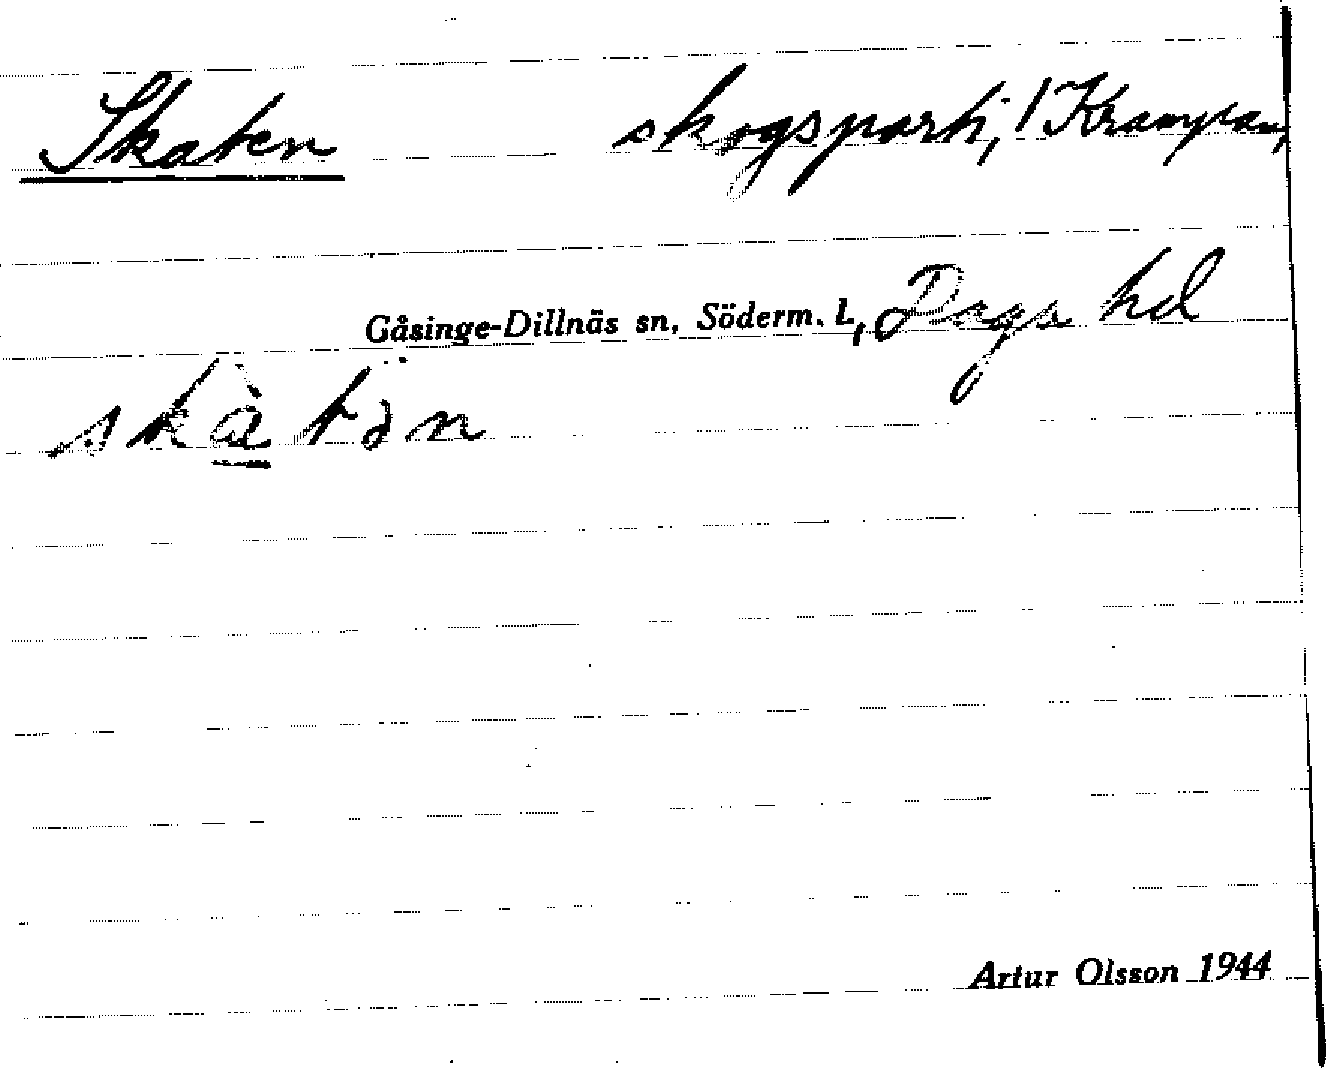 Skaten skogsparti, 1 Krampan,
Gåsinge-Dillnäs sn, Söderm. l., Daga hd
skàtən
Artur Olsson 1944